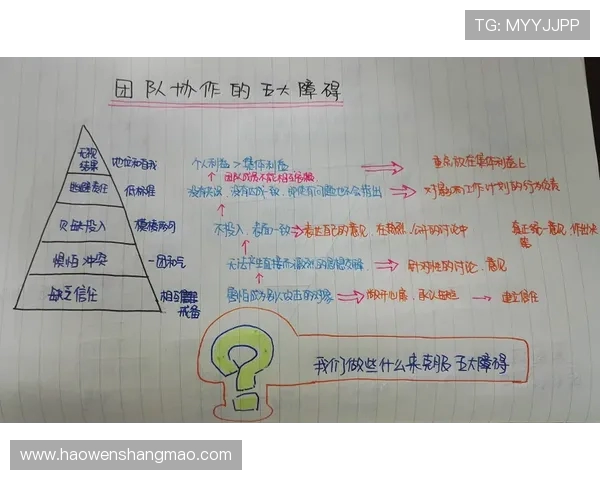 TG: MYYJJPP
团队协作的五大障碍
无视结果 地位和自我 个人利益 > 集体利益 重点放在集体利益上
团队成员不能相互
逃避责任 低标准 对影响工作计划的行为负责
欠缺投入 模棱两可 不投入,表面一致 表达自己的意见,在热烈、公开的讨论中 真正统一意见,作出决策
惧怕冲突 一团和气 无法产生直接而激烈的思想交锋 针对性的讨论、意见
缺乏信任 相互戒备 害怕成为别人攻击的对象 敞开心扉,承认 建立信任
?
我们做些什么来克服五大障碍
www.haowenshangmao.com